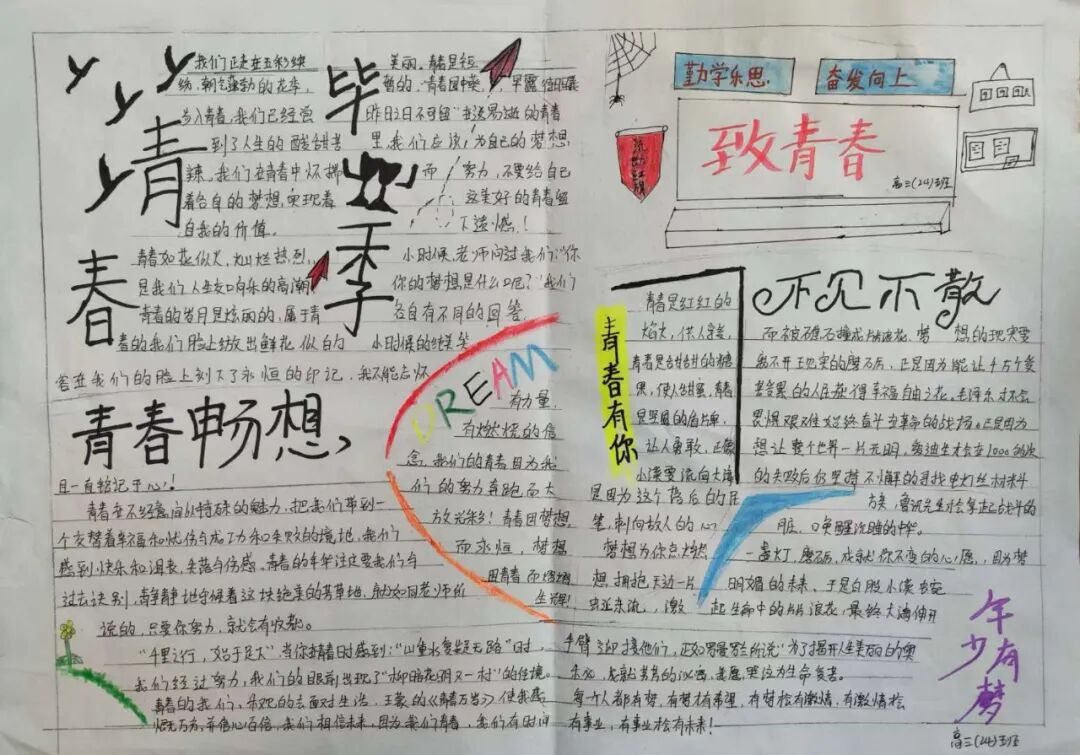 少 少 少
青
春
毕
业
季
我们正走在五彩缤
纷,朝气蓬勃的花季,
步入青春,我们已经尝
到了人生的酸甜苦
辣,我们在青春中怀揣
着各自的梦想,实现着
自我的价值。
青春如花似火,灿烂热烈,
是我们人生交响乐的高潮
青春的岁月是炫丽的,属于青
春的我们脸上绽放出鲜花似的
美丽。青春是短
暂的,"青春因梦
昨日之日不可留"我逐易逝的青春
里,我们应该,为自己的梦想
而 努力,不要给自己
这美好的青春留
下遗憾!
小时候,老师问过我们:"你
你的梦想是什么呢?"我们
各自有不同的回答,
小时候的纯美
在我们的脸上刻下了永恒的印记,我不能忘怀
DREAM
青春畅想,
且一直铭记于心!
青春在不经意间以特殊的魅力,把我们带到一
个交替着幸福和忧伤与成功和失败的境地,我们
感到快乐和沮丧,失落与伤感。青春的年华注定要我们与
过去诀别,静静地守候着这块绝美的芳草地,就如同老师所
说的,只要你努力,就会有收获。
"千里之行,始于足下",当你青春时感到:"山重水复疑无路"时,
我们经过努力,我们的眼前出现了"柳暗花明又一村"的佳境。
青春的我们,乐观的去面对生活,王蒙的《青春万岁》使我感
慨万分,并信心百倍,我们相信未来,因为我们青春,我们有时间
有力量,
有燃烧的信
念,我们的青春因为我
们的努力奔跑而大
放光彩!青春因梦想
而永恒,梦想
因青春而熠熠
生辉!
勤学乐思
奋发向上
流动红旗
致青春
高三(24)班
青春有你
青春是红红的
焰火,供人穿梭,
青春是甜甜的糖
果,使人甜蜜,青春
是坚固的盾牌,
让人勇敢,正像
小溪要流向大海
是因为这个落后的民
笔,刺向敌人的心
梦想为你点燃
想,拥抱天边一片 明媚的未来,于是白胜小溪蜿
蜒东流,激 起生命中的片片浪花,最终大海伸开
不见不散
而被礁石撞成片片浪花,梦 想的现实要
离不开现实的磨石,正是因为能让千万个受
苦受累的人民获得幸福自由之花,毛泽东才不会
畏惧艰难始终奋斗在革命的战场。正是因为
想让整个世界一片光明,爱迪生才会在1000多次
的失败后仍坚持不懈的寻找电灯丝材料
族,鲁迅先生才会拿起战斗的
脏,唤醒沉睡的中华。
一盏灯,磨石后,成就你不变的心愿,因为梦
手臂迎接他们,正如罗曼罗兰所说"为了揭开人生美丽的奥
每个人都有梦,有梦才有希望,有梦松有激情,有激情松
有事业,有事业松有未来!
年少有梦
高三(24)班